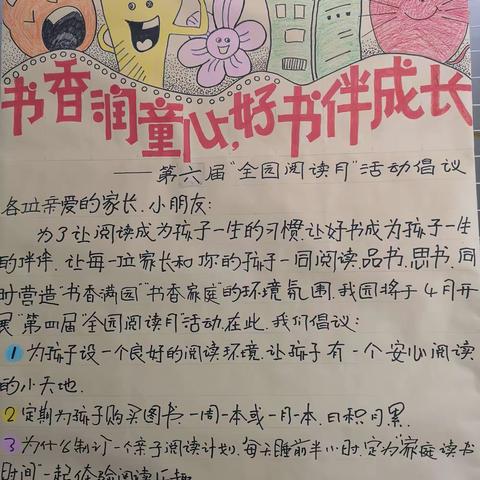 书香润童心,好书伴成长
——第六届"全园阅读月"活动倡议
各位亲爱的家长、小朋友:
为了让阅读成为孩子一生的习惯,让好书成为孩子一生
的伴伴,让每一位家长和你的孩子一同阅读、品书、思书,同
时营造"书香满园""书香家庭"的环境氛围,我园将于4月开
展"第四届"全园阅读月"活动,在此,我们倡议:
1 为孩子设一个良好的阅读环境,让孩子有一个安心阅读
的小天地.
2 定期为孩子购买图书,一周一本或一月一本,日积月累.
3 为什么制订一个亲子阅读计划,每天睡前半小时,定为"家庭读书
时间"一起体验阅读乐趣